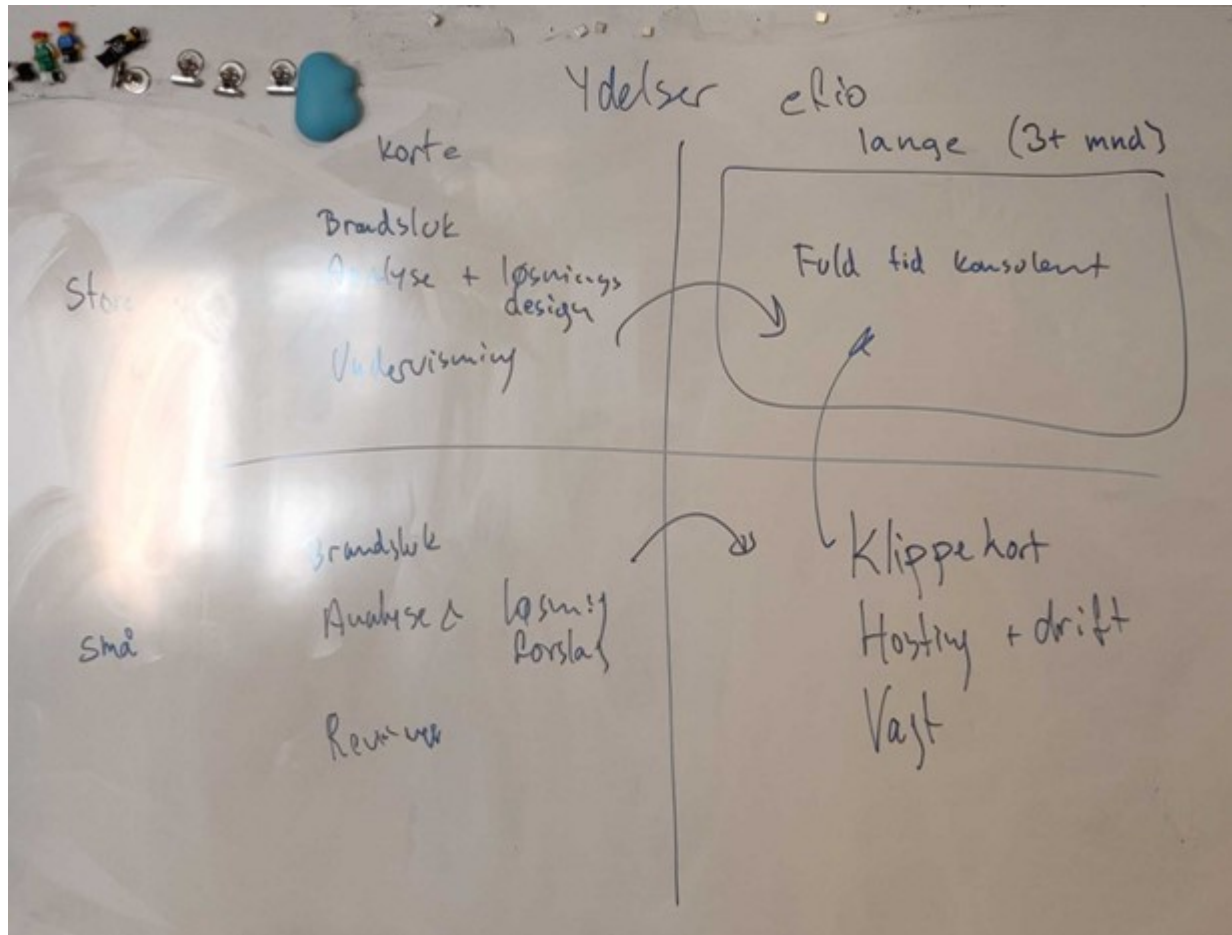 Ydelser efio
korte
lange (3+ mnd)
Store
Brandsluk
Analyse + løsnings
design
Undervisning
Fuld tid konsulent
små
Brandsluk
Analyse & løsning
forslag
Klippekort
Hosting + drift
Vagt